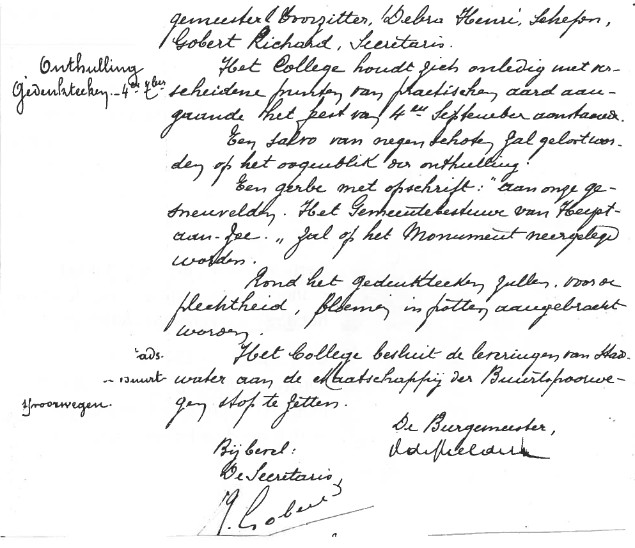 gemeester/Voorzitter, Debra Henri, Schepen,
Gobert Richard, Secretaris.
Onthulling
Gedenkteeken - 4en 7ber
Het College houdt zich onledig met ver-
scheidene punten van practischen aard aan-
gaande het feest van 4en September aanstaande.
Een salvo van negen schoten zal gelost wor-
den op het oogenblik der onthulling.
Een gerbe met opschrift: "aan onze ge-
sneuvelden. Het Gemeentebestuur van Heyst-
aan-Zee." zal op het Monument neergelegd
worden.
Rond het gedenkteeken zullen, voor de
plechtheid, bloemen in potten aangebracht
worden.
Het College besluit de leveringen van Stad-
water aan de Maatschappij der Buurtspoorwe-
gen stop te zetten.
ads.
buurt
spoorwegen.
De Burgemeester,
Bij bevel:
De Secretaris,
R. Gobert